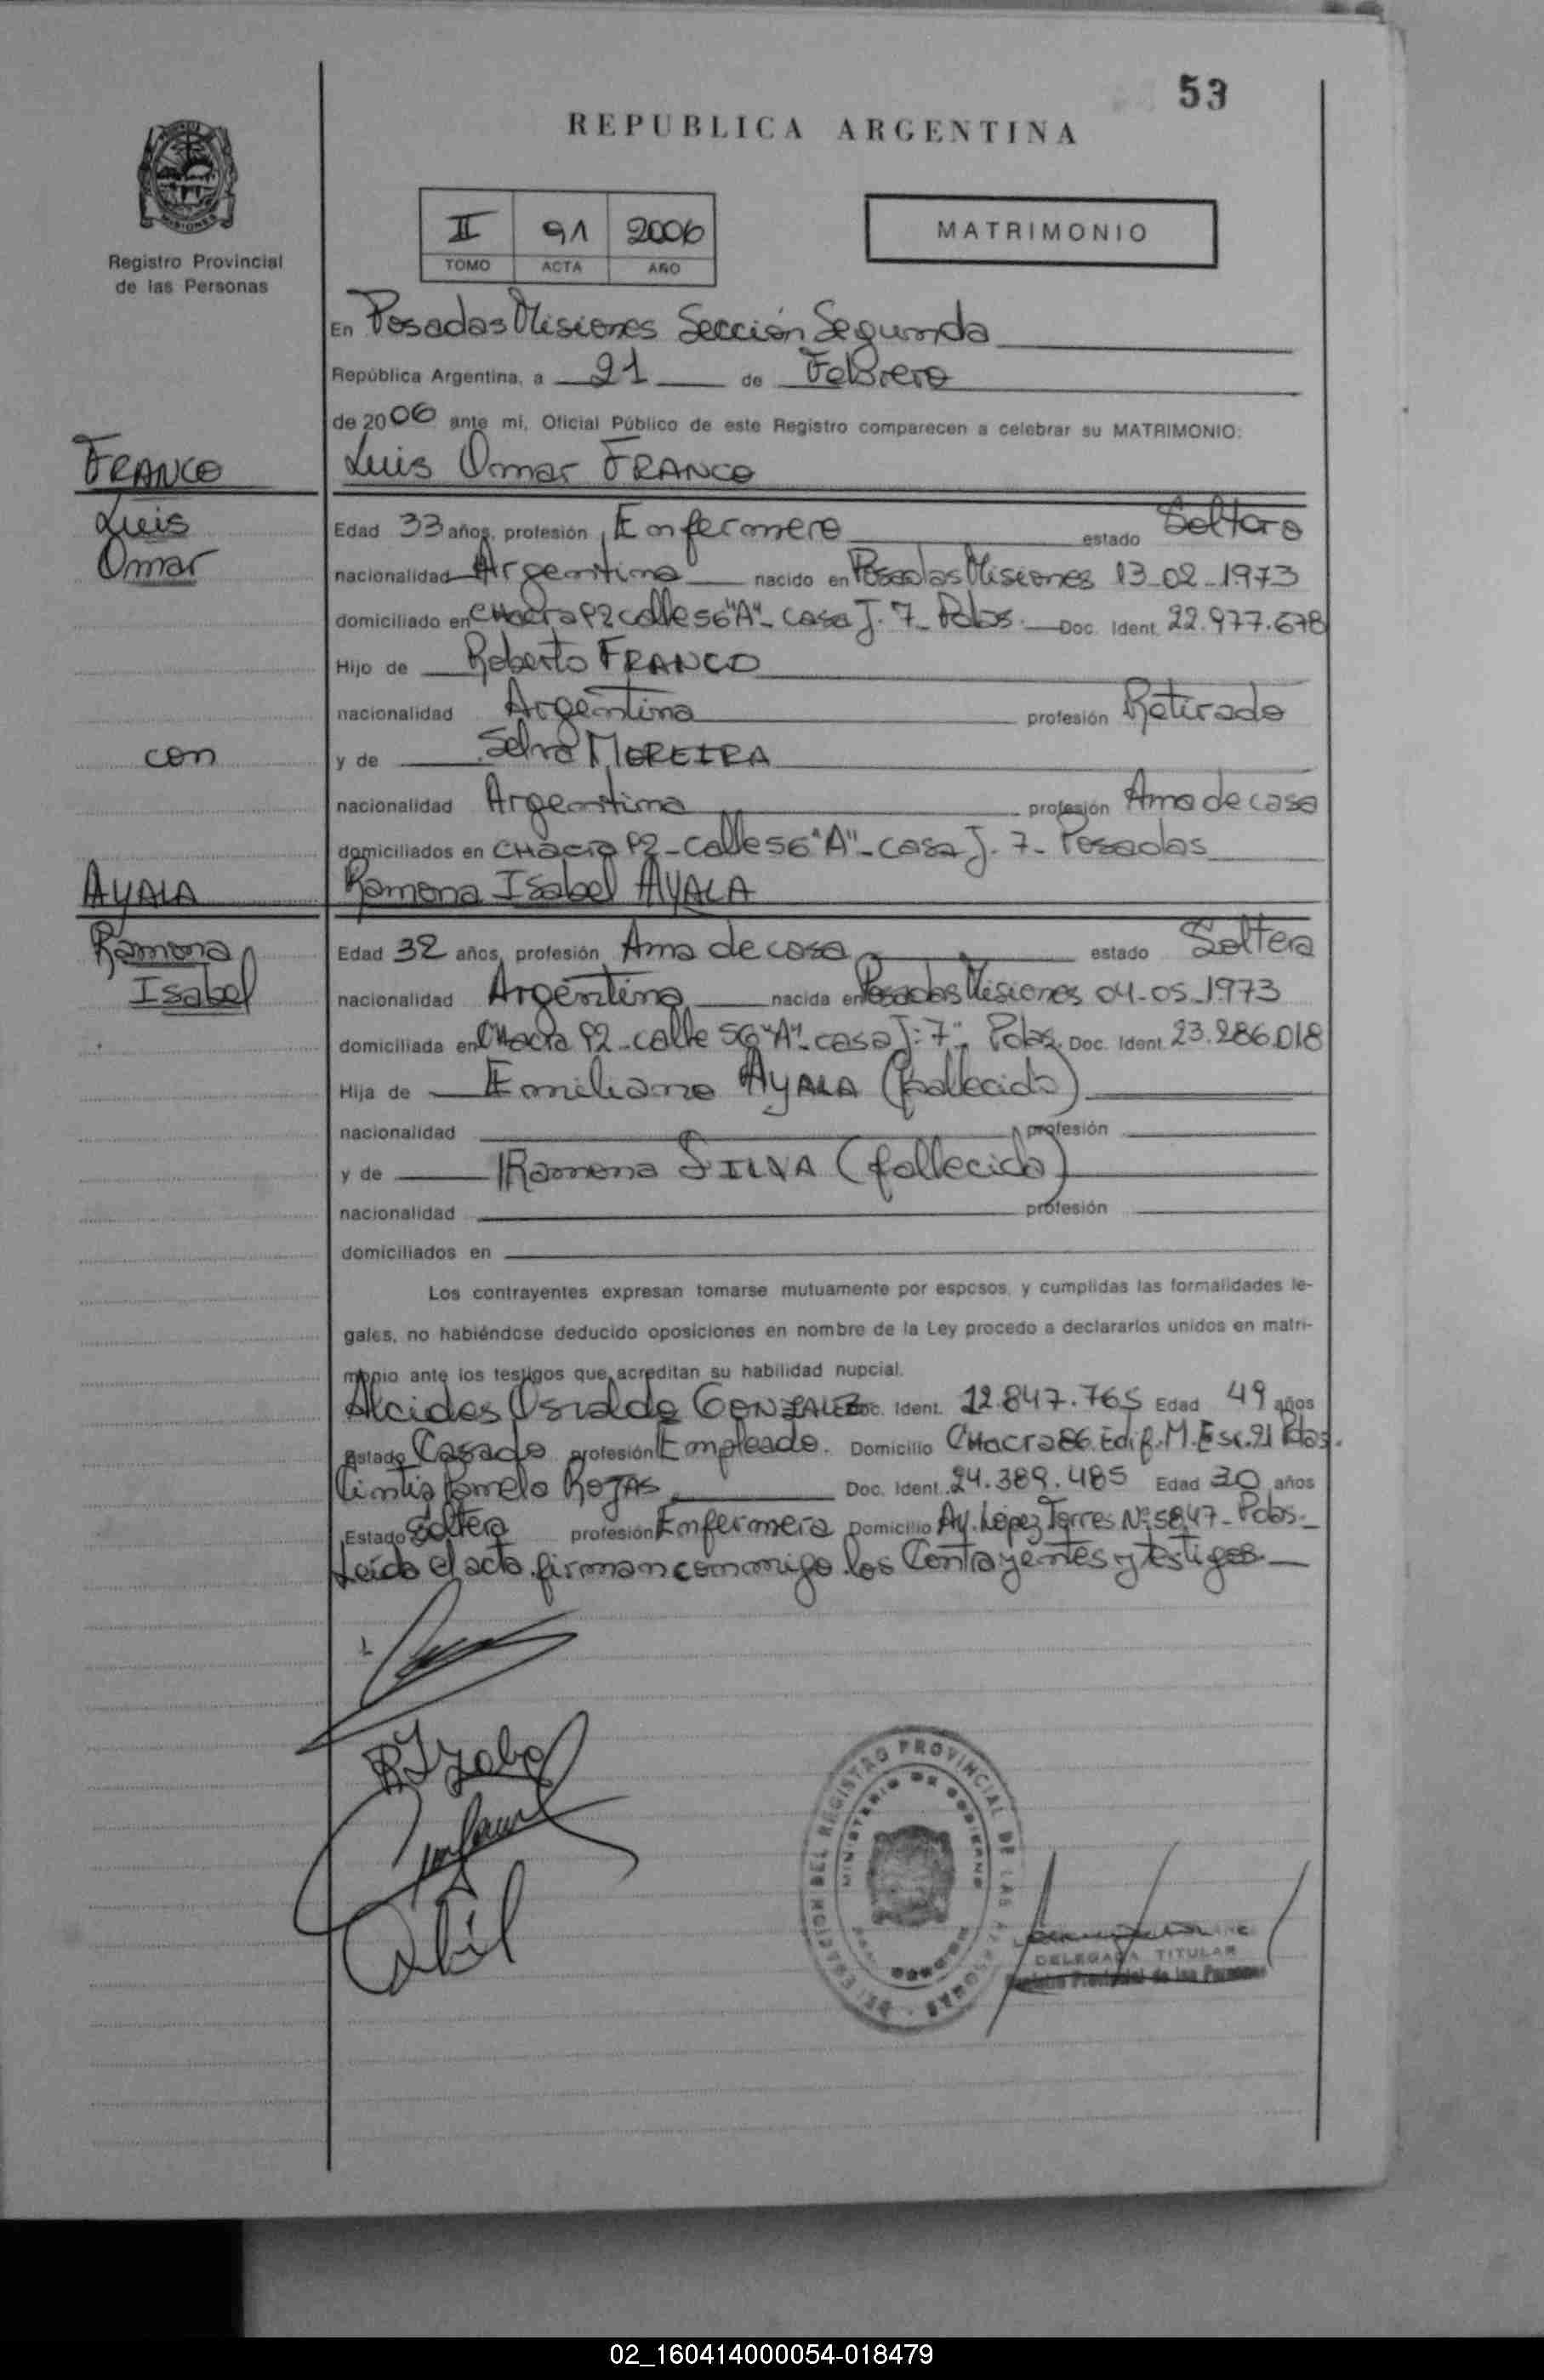 53
REPUBLICA ARGENTINA
Registro Provincial
de las Personas
II 91 2006
TOMO ACTA AÑO
MATRIMONIO
En Posadas Misiones Sección Segunda
República Argentina, a 21 de Febrero
de 2006 ante mí, Oficial Público de este Registro comparecen a celebrar su MATRIMONIO:
FRANCO Luis Omar FRANCO
Luis
Edad 33 años, profesión Enfermero estado Soltero
Omar
nacionalidad Argentina nacido en Posadas Misiones 13-02-1973
domiciliado en CHacra calle 56 "A"- casa J. 7- Pdas. Doc. Ident. 22.977.678
Hijo de Roberto FRANCO
nacionalidad Argentina profesión Retirado
con
y de Selva MOREIRA
nacionalidad Argentina profesión Ama de casa
domiciliados en CHacra calle 56 "A"- casa J. 7- Posadas
AYALA Ramona Isabel AYALA
Ramona
Edad 32 años, profesión Ama de casa estado Soltera
Isabel
nacionalidad Argentina nacida en Posadas Misiones 04-05-1973
domiciliada en CHacra calle 56 "A"- casa J: 7- Pdas. Doc. Ident. 23.286.018
Hija de Emiliano AYALA (fallecido)
nacionalidad profesión
y de Ramona SILVA (fallecida)
nacionalidad profesión
domiciliados en
Los contrayentes expresan tomarse mutuamente por esposos, y cumplidas las formalidades le-
gales, no habiéndose deducido oposiciones en nombre de la Ley procedo a declararlos unidos en matri-
monio ante los testigos que acreditan su habilidad nupcial.
Alcides Osvaldo GONZALEZ Doc. Ident. 12.847.765 Edad 49 años
Estado Casado profesión Empleado. Domicilio CHacra 86. Edif. M. Esc. 21 Pdas.
Cintia Pamela ROJAS Doc. Ident. 24.389.485 Edad 30 años
Estado Soltera profesión Enfermera Domicilio Av. López Torres Nº 5847- Pdas.-
Leída el acta firman conmigo los Contrayentes y testigos.-
DELEGACION DEL REGISTRO PROVINCIAL DE LAS PERSONAS
MINISTERIO DE GOBIERNO
MISIONES
DELEGADA TITULAR
Registro Provincial de las Personas
02_160414000054-018479